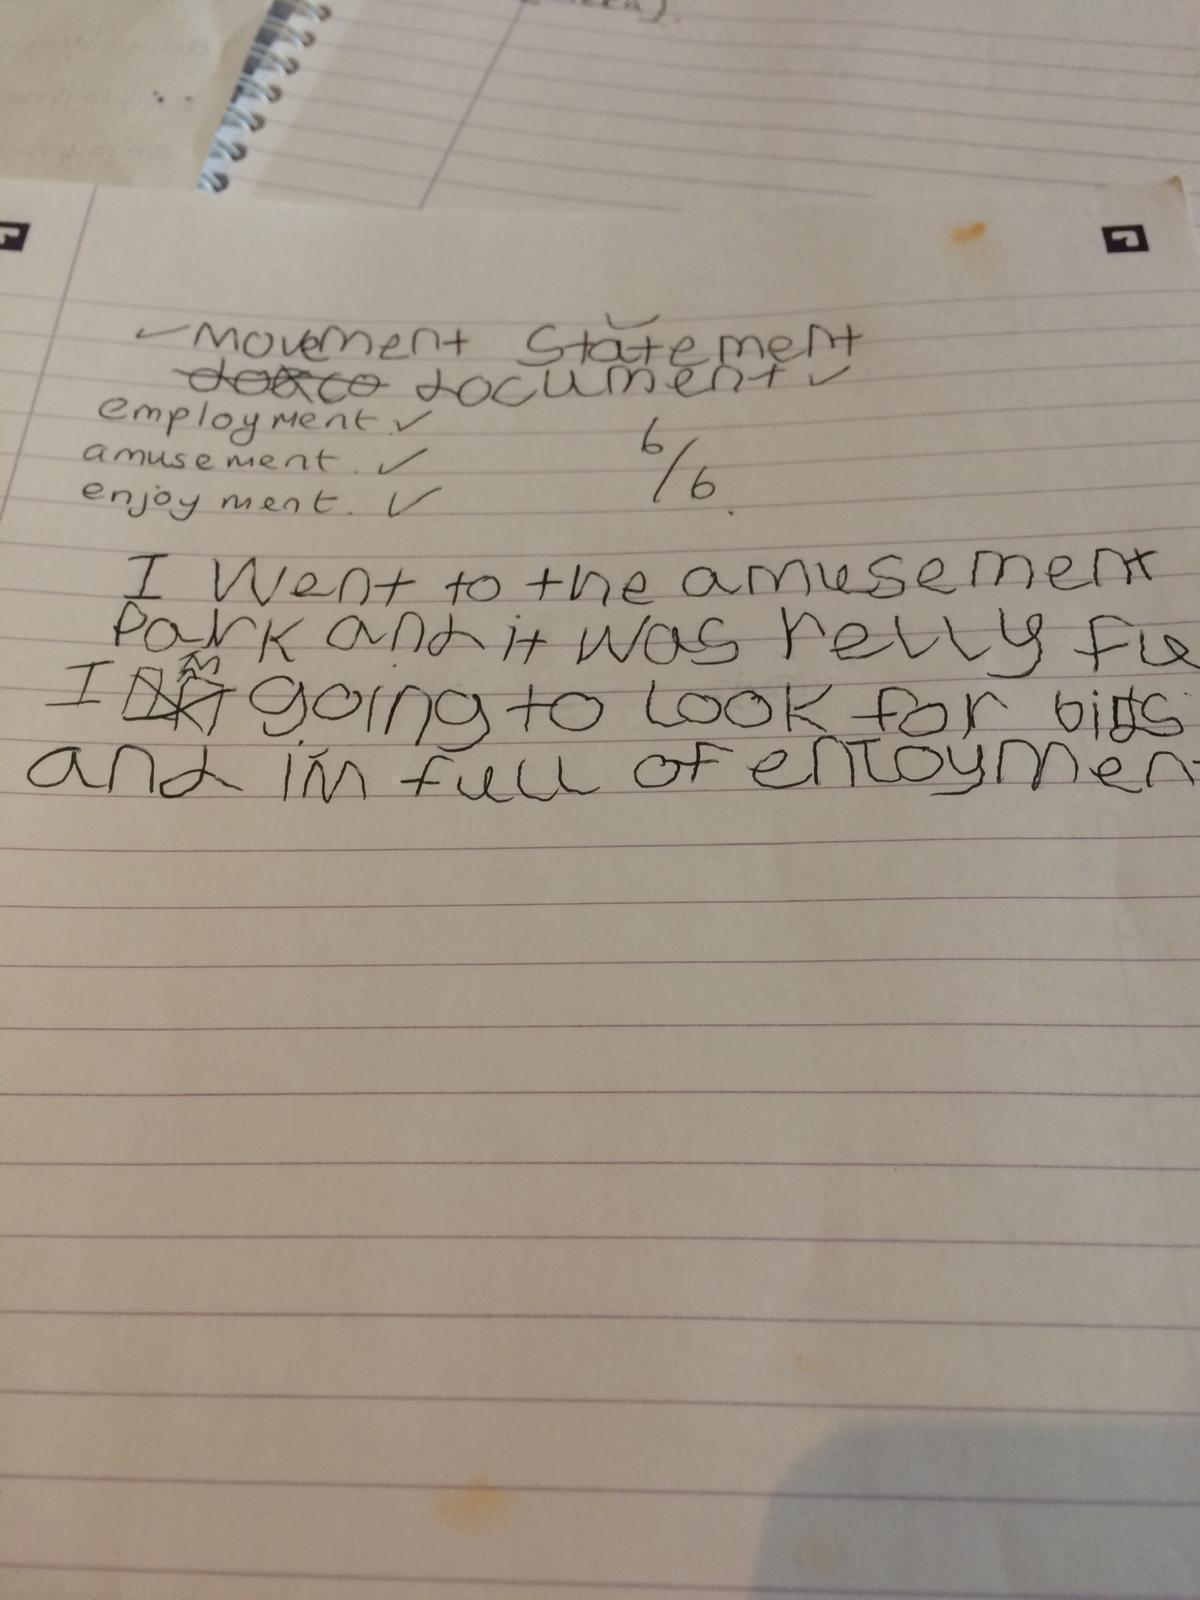 ✓ Movement Statement ✓
document ✓
employment ✓
amusement. ✓
enjoyment. ✓
6/6.
I Went to the amusement
Park and it was relly
I m going to look for
and i'm full of